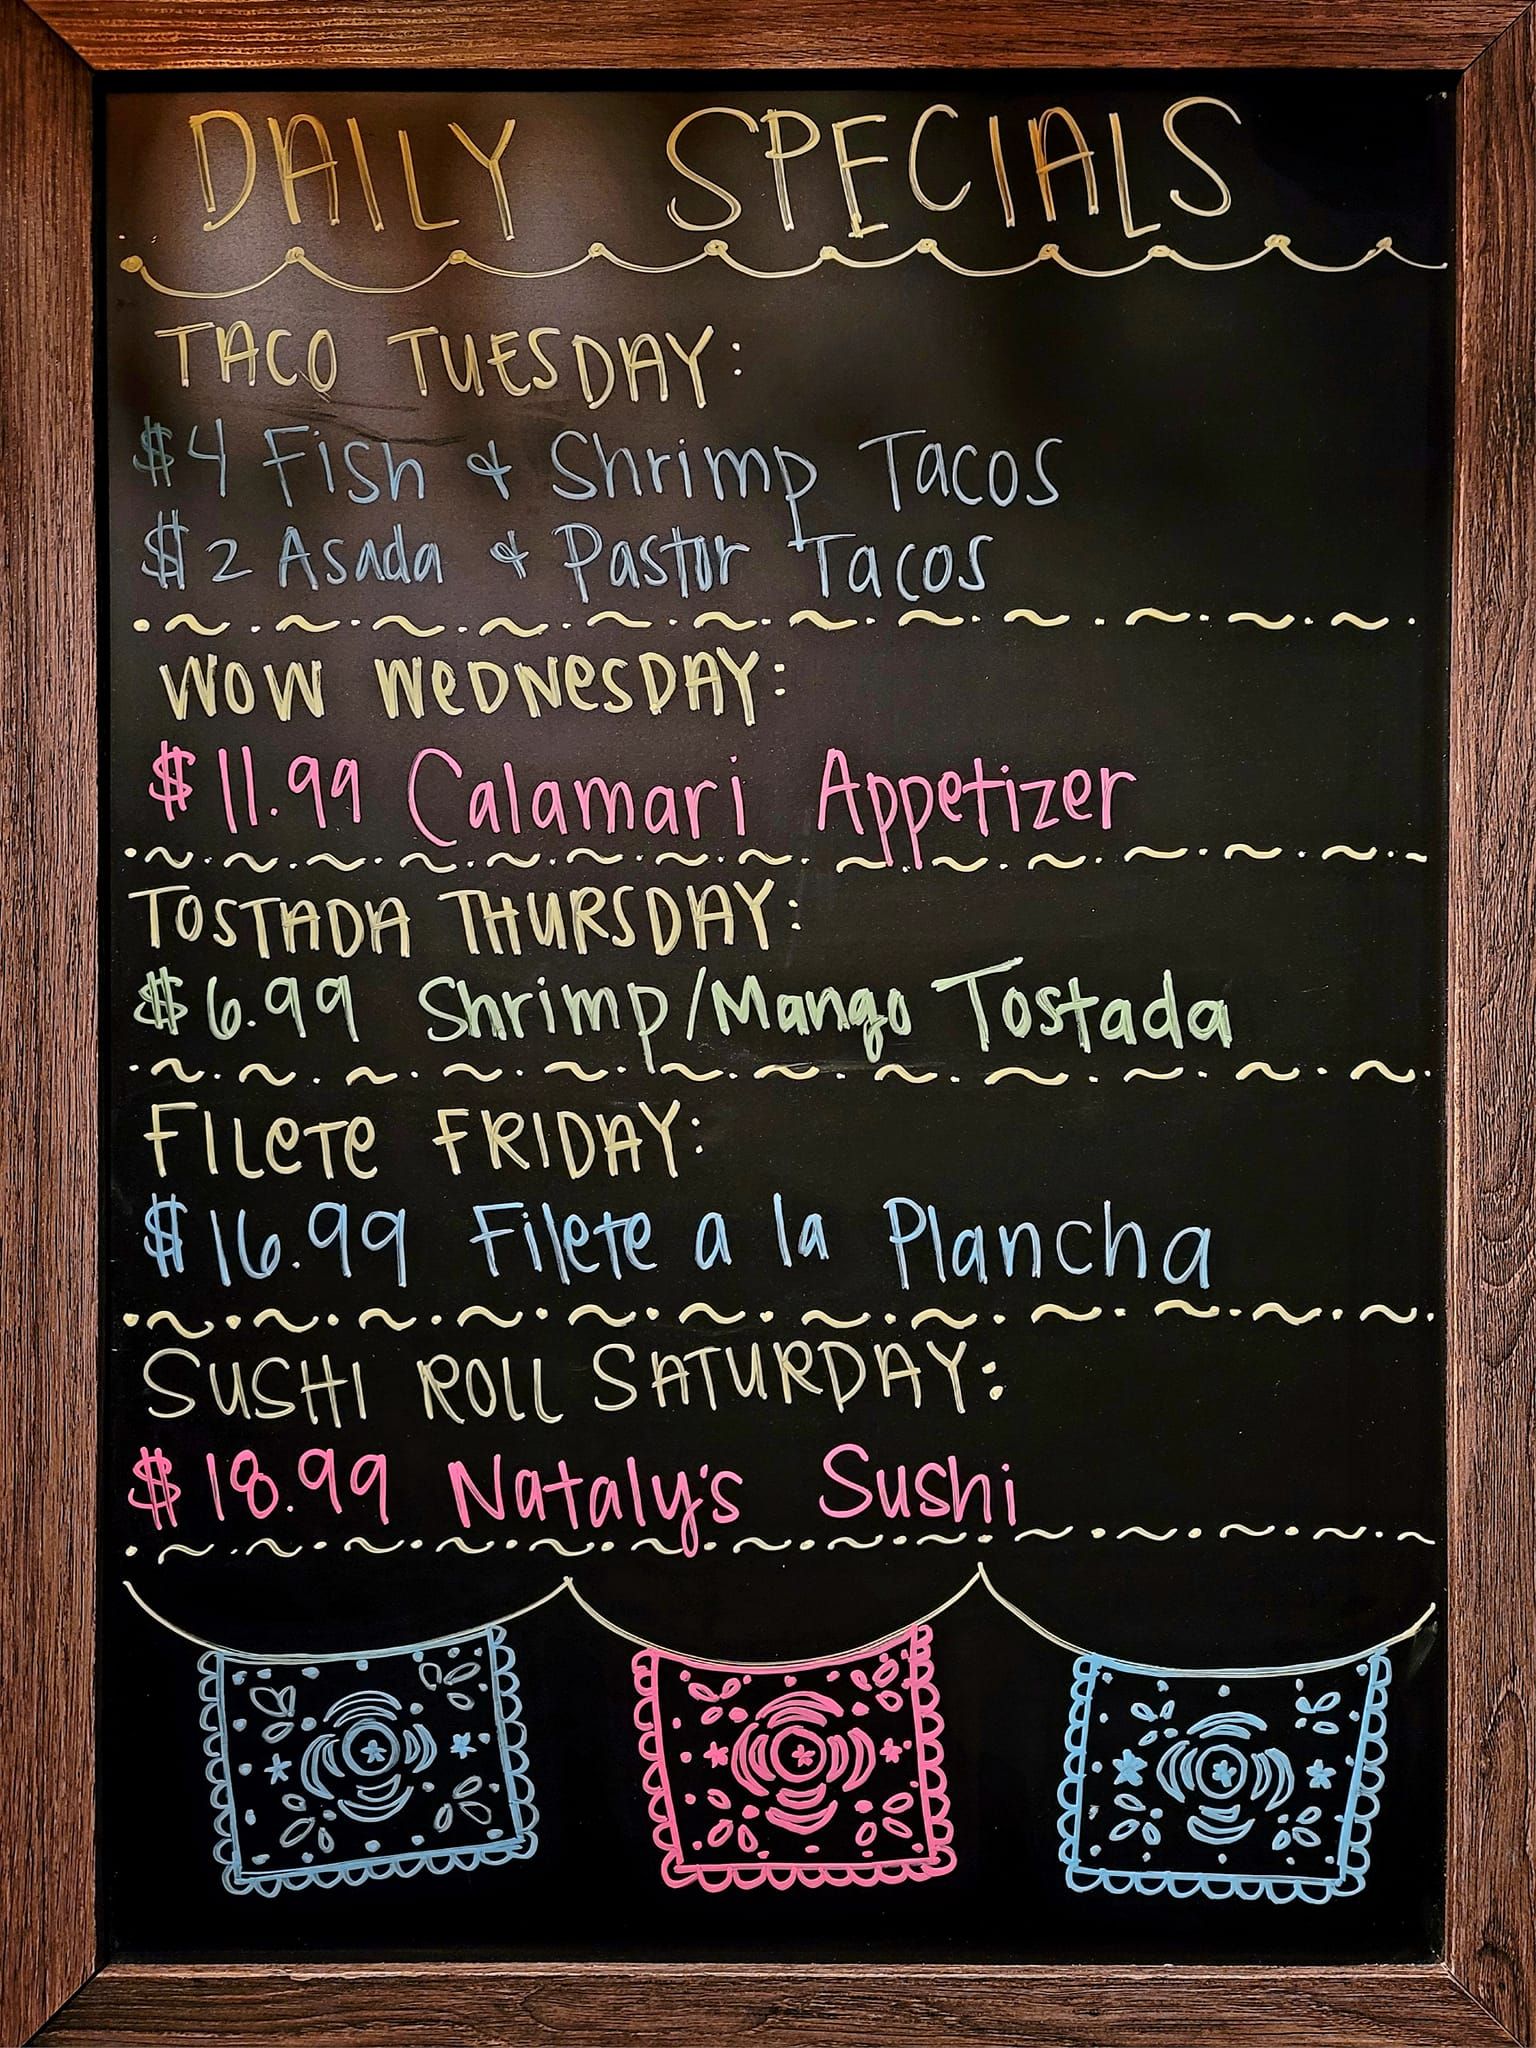 DAILY SPECIALS
TACO TUESDAY:
$4 Fish & Shrimp Tacos
$2 Asada & Pastor Tacos
WOW WeDNesDAY:
$11.99 Calamari Appetizer
TOSTADA THURSDAY:
$6.99 Shrimp/Mango Tostada
FILeTe FRIDAY:
$16.99 Filete a la Plancha
SUSHI ROLL SATURDAY:
$18.99 Nataly's Sushi